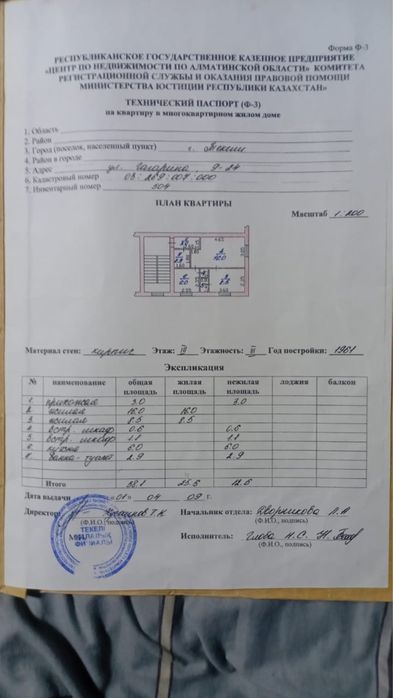 Форма Ф-3
РЕСПУБЛИКАНСКОЕ ГОСУДАРСТВЕННОЕ КАЗЕННОЕ ПРЕДПРИЯТИЕ
«ЦЕНТР ПО НЕДВИЖИМОСТИ ПО АЛМАТИНСКОЙ ОБЛАСТИ» КОМИТЕТА
РЕГИСТРАЦИОННОЙ СЛУЖБЫ И ОКАЗАНИЯ ПРАВОВОЙ ПОМОЩИ
МИНИСТЕРСТВА ЮСТИЦИИ РЕСПУБЛИКИ КАЗАХСТАН»
ТЕХНИЧЕСКИЙ ПАСПОРТ (Ф-3)
на квартиру в многоквартирном жилом доме
1. Область
2. Район
3. Город (поселок, населенный пункт) г. Текели
4. Район в городе
5. Адрес ул. Гагарина 9-24
6. Кадастровый номер 03:269:007:000
7. Инвентарный номер 504
ПЛАН КВАРТИРЫ
Масштаб 1:200
Материал стен: кирпич Этаж: Этажность: Год постройки: 1961
Экспликация
№ наименование общая площадь жилая площадь нежилая площадь лоджия балкон
1. прихожая 3.0 3.0
2. жилая 16.0 16.0
3. жилая 8.5 8.5
4. встр. шкаф 0.6 0.6
5. встр. шкаф 1.1 1.1
6. кухня 6.0 6.0
7. ванна-туалет 2.9 2.9
Итого 38.1
Дата выдачи «01» 04 09 г.
Директор Т.К. Начальник отдела: Дворникова Л.А
(Ф.И.О., подпись) (Ф.И.О., подпись)
М.П.
ТЕКЕЛІ
ҚАЛАЛЫҚ
ФИЛИАЛЫ
Исполнитель: Глова Н.С.
(Ф.И.О., подпись)